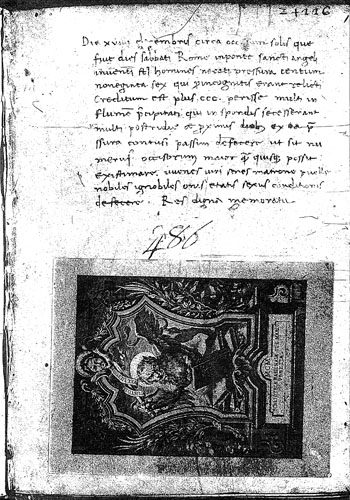 24116
Die decembris circa occasum solis que
fuit dies sabbati Rome in ponte sancti angeli
inventi st homines necati pressura centum
nonaginta sex qui incogniti erant relicti
Creditum est plus .ccc. perisse multi in
flumen pcipitati qui in spondis secesserant
multi postridie ac proximis dieb ex ea p
ssura contusi passim defecere ut sit nu
merus occisorum maior q quisq possit
existimare. iuvenes viri senes matrone puelle
nobiles ignobiles omnis etatis sexus conditionis
defecere. Res digna memoratu
486